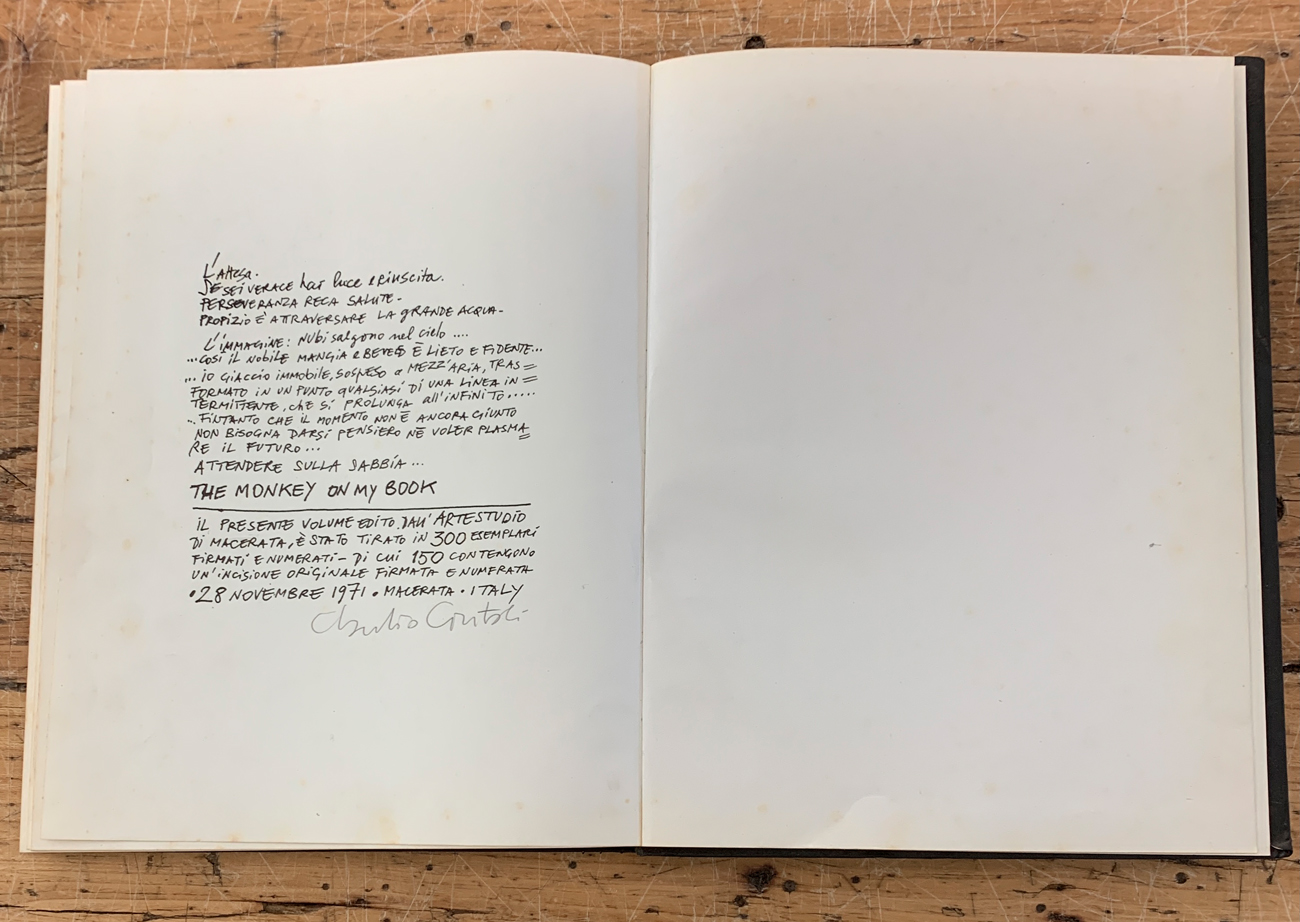 L'Attesa.
SE SEI VERACE hai luce e riuscita.
PERSEVERANZA RECA SALUTE-
PROPIZIO È ATTRAVERSARE LA GRANDE ACQUA-
L'IMMAGINE: Nubi salgono nel cielo ....
...COSÌ IL NOBILE MANGIA E BEVE È LIETO E FIDENTE...
... IO GIACCIO IMMOBILE, SOSPESO A MEZZ'ARIA, TRAS=
FORMATO IN UN PUNTO QUALSIASI DI UNA LINEA IN=
TERMITTENTE, che SI PROLUNGA all'INFINITO.....
..FINTANTO CHE IL MOMENTO NON È ANCORA GIUNTO
NON BISOGNA DARSI PENSIERO NÈ VOLER PLASMA=
RE IL FUTURO...
ATTENDERE SULLA SABBIA...
THE MONKEY ON MY BOOK
IL PRESENTE VOLUME EDITO DALL'ARTESTUDIO
DI MACERATA, È STATO TIRATO IN 300 ESEMPLARI
FIRMATI E NUMERATI- DI CUI 150 CONTENGONO
UN'INCISIONE ORIGINALE FIRMATA E NUMERATA
•28 NOVEMBRE 1971 • MACERATA • ITALY